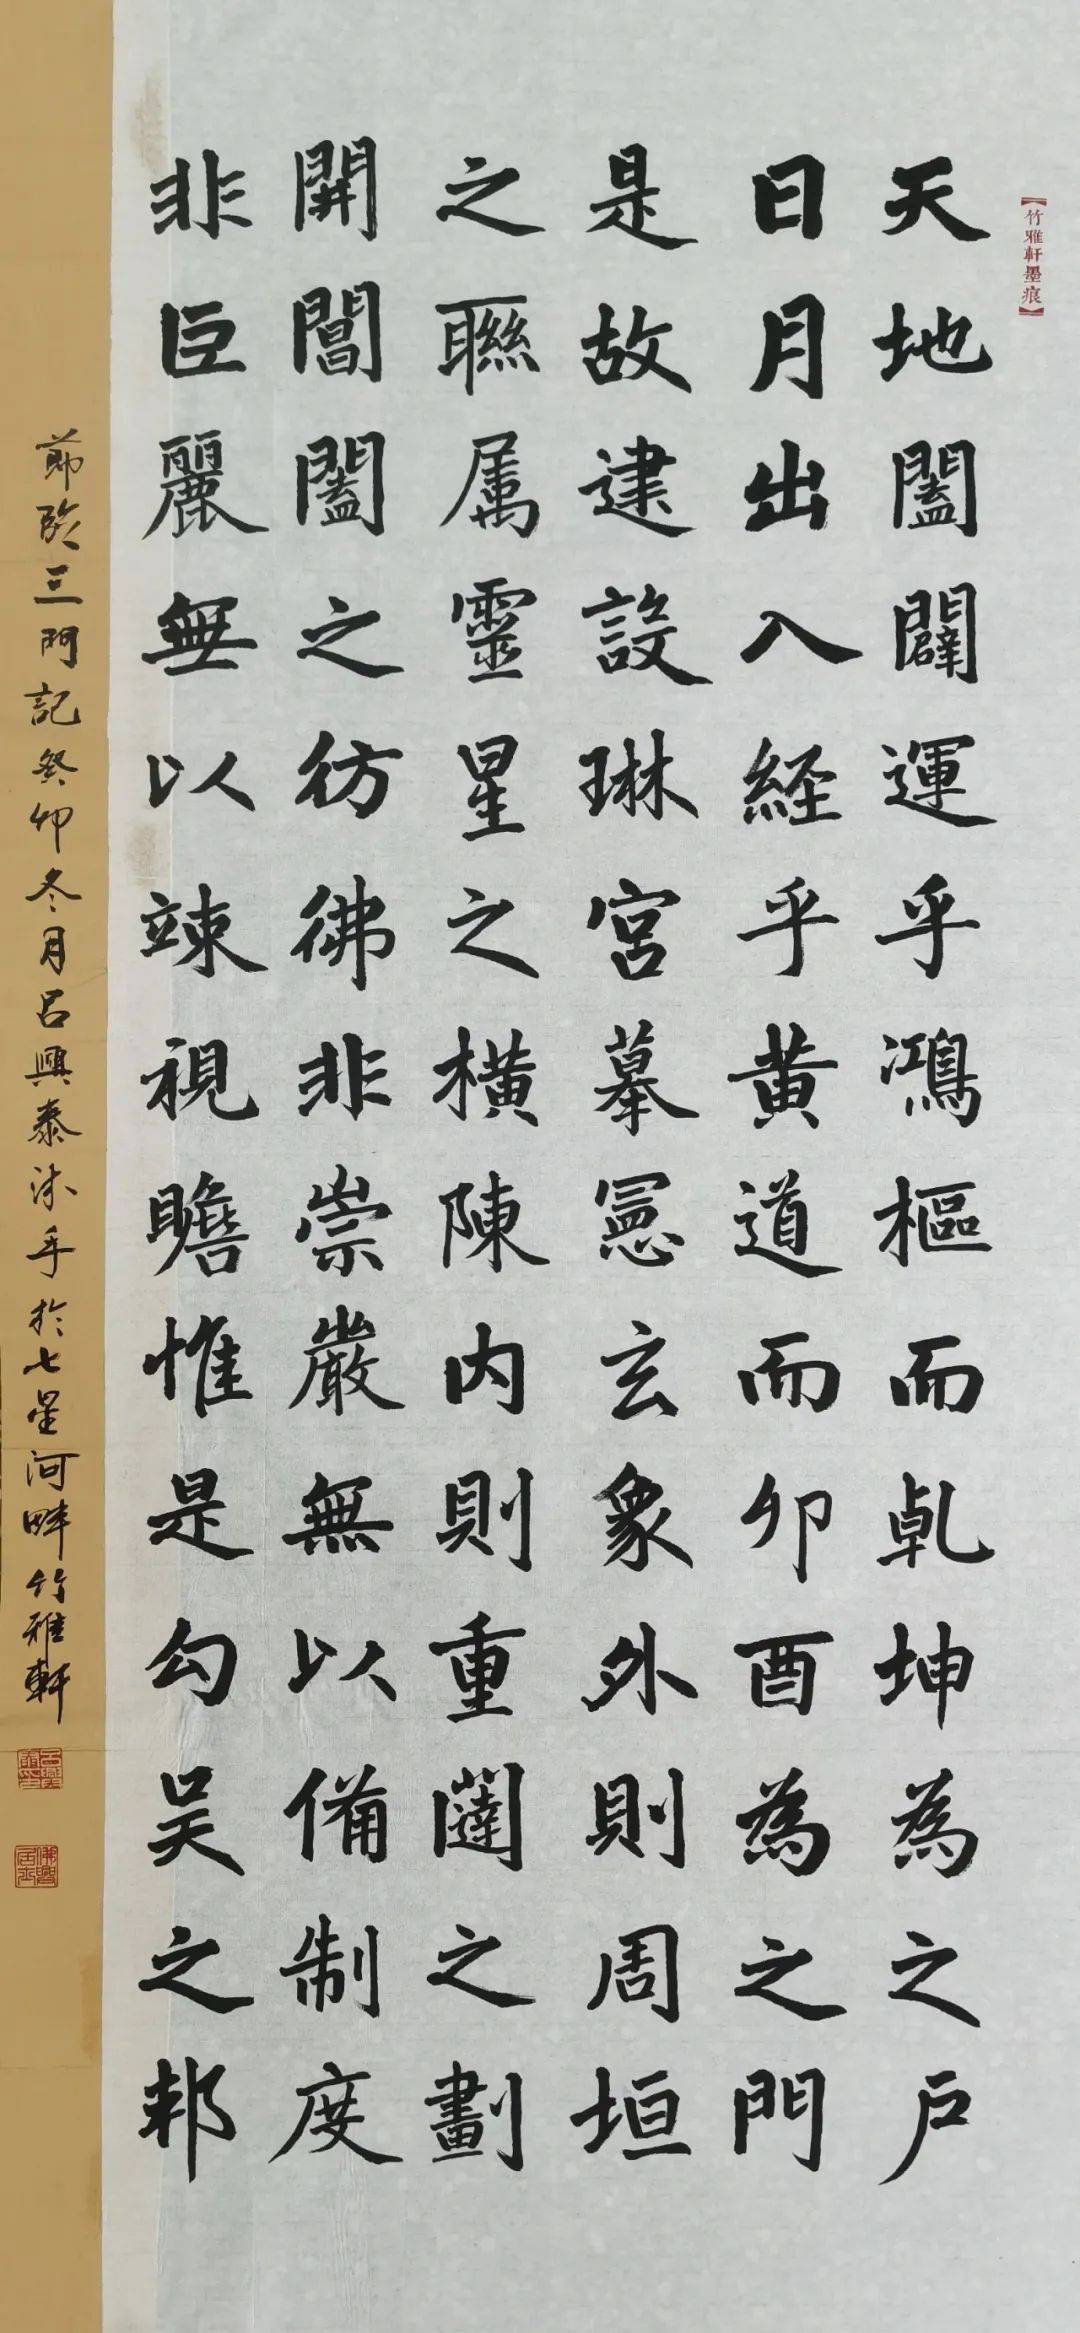 【竹雅軒墨痕】
天地闔闢運乎鴻樞而乹坤為之戶
日月出入経乎黃道而卯酉為之門
是故建設琳宮摹憲玄象外則周垣
之聯属靈星之橫陳内則重闥之劃
開閶闔之彷彿非崇嚴無以備制度
非巨麗無以竦視瞻惟是勾吴之邦
節臨三門記癸卯冬月呂興泰沐手於七星河畔竹雅軒